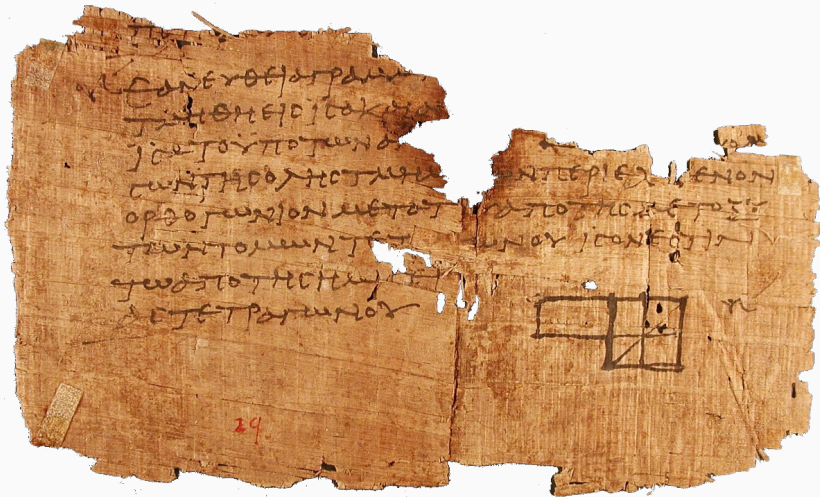 ΕΑΝ ΕΥΘΕΙΑ ΓΡΑΜΜ
ΤΜΗΘΗ ΕΙϹ ΙϹΑ ΚΑΙ Α
ΙϹΑ ΤΟ ΥΠΟ ΤΩΝ Α
ϹΩΝ ΤΗϹ ΟΛΗϹ ΤΜΗΜ ΩΝ ΠΕΡΙΕΧ ΕΝΟΝ
ΟΡΘΟΓΩΝΙΟΝ ΜΕΤΑ ΤΟΥ ΑΠΟ ΤΗϹ ΜΕΤΟΞΥ
ΤΩΝ ΤΟΜΩΝ ΤΕΤ ΩΝΟΥ ΙϹΟΝ ΕϹΤΙΝ
ΤΩ ΑΠΟ ΤΗϹ ΗΜΙϹΕΙ
ΑϹ ΤΕΤΡΑΓΩΝΟΥ
29.